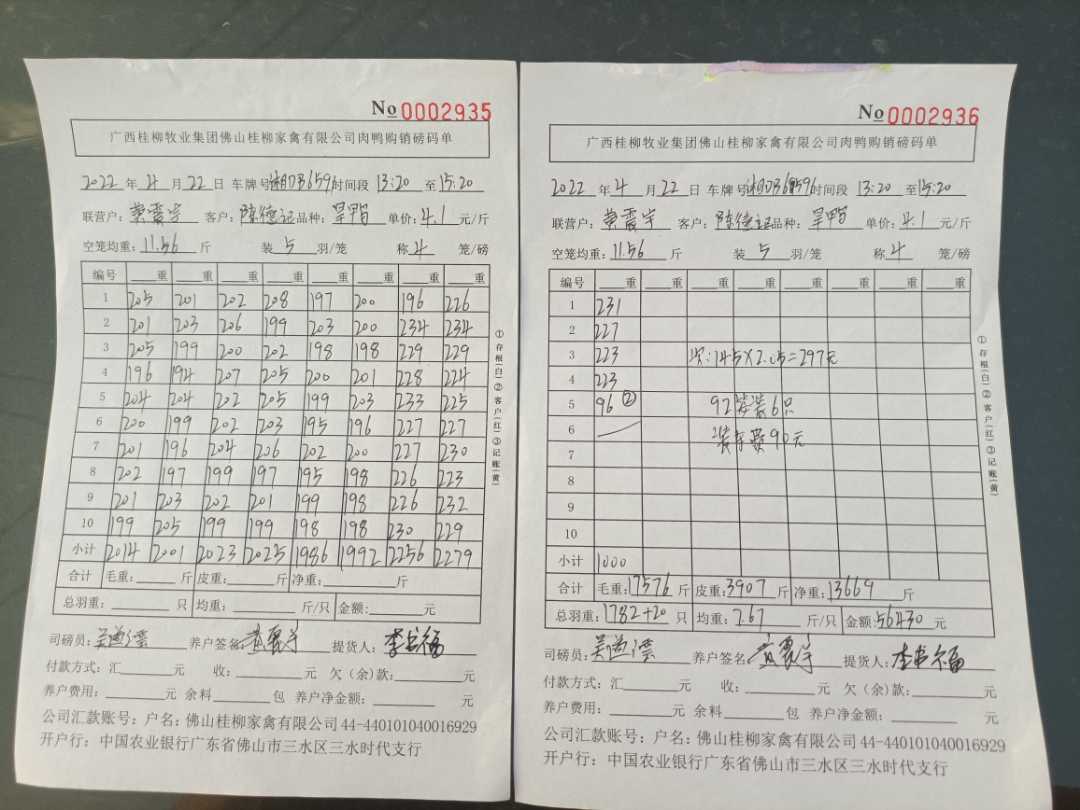 No 0002935
广西桂柳牧业集团佛山桂柳家禽有限公司肉鸭购销磅码单
2022 年 4 月 22 日 车牌号 时间段 13:20 至 15:20
联营户: 客户: 陈德记 品种: 旱鸭 单价: 4.1 元/斤
空笼均重: 11.56 斤 装 5 羽/笼 称 4 笼/磅
编号 重 重 重 重 重 重 重 重
1 205 201 202 208 197 200 196 226
2 201 203 206 199 203 200 234 234
3 205 199 200 202 198 198 229 229
4 196 194 207 205 200 201 228 224
5 204 204 202 205 199 203 233 225
6 200 199 202 203 195 196 227 227
7 201 196 204 206 202 200 227 230
8 202 197 199 197 195 198 226 223
9 201 203 202 201 199 198 226 232
10 199 205 199 199 198 198 230 229
小计 2014 2001 2023 2025 1986 1992 2256 2279
合计 毛重: 斤 皮重: 斤 净重: 斤
总羽重: 只 均重: 斤/只 金额: 元
司磅员: 养户签名: 提货人:
付款方式: 汇 元 收: 元 欠(余)款: 元
养户费用: 元 余料 包 养户净金额: 元
公司汇款账号: 户名: 佛山桂柳家禽有限公司 44-440101040016929
开户行: 中国农业银行广东省佛山市三水区三水时代支行
①存根(白)②客户(红)③记账(黄)
No 0002936
广西桂柳牧业集团佛山桂柳家禽有限公司肉鸭购销磅码单
2022 年 4 月 22 日 车牌号 时间段 13:20 至 15:20
联营户: 客户: 陈德记 品种: 旱鸭 单价: 4.1 元/斤
空笼均重: 11.56 斤 装 5 羽/笼 称 4 笼/磅
编号 重 重 重 重 重 重 重 重
1 231
2 227
3 223 次: 145×2.05=297元
4 223
5 96 ② 92 装6只
6 装车费90元
7
8
9
10
小计 1000
合计 毛重: 17576 斤 皮重: 3907 斤 净重: 13669 斤
总羽重: 1782+20 只 均重: 7.67 斤/只 金额: 56430 元
司磅员: 养户签名: 提货人:
付款方式: 汇 元 收: 元 欠(余)款: 元
养户费用: 元 余料 包 养户净金额: 元
公司汇款账号: 户名: 佛山桂柳家禽有限公司 44-440101040016929
开户行: 中国农业银行广东省佛山市三水区三水时代支行
①存根(白)②客户(红)③记账(黄)